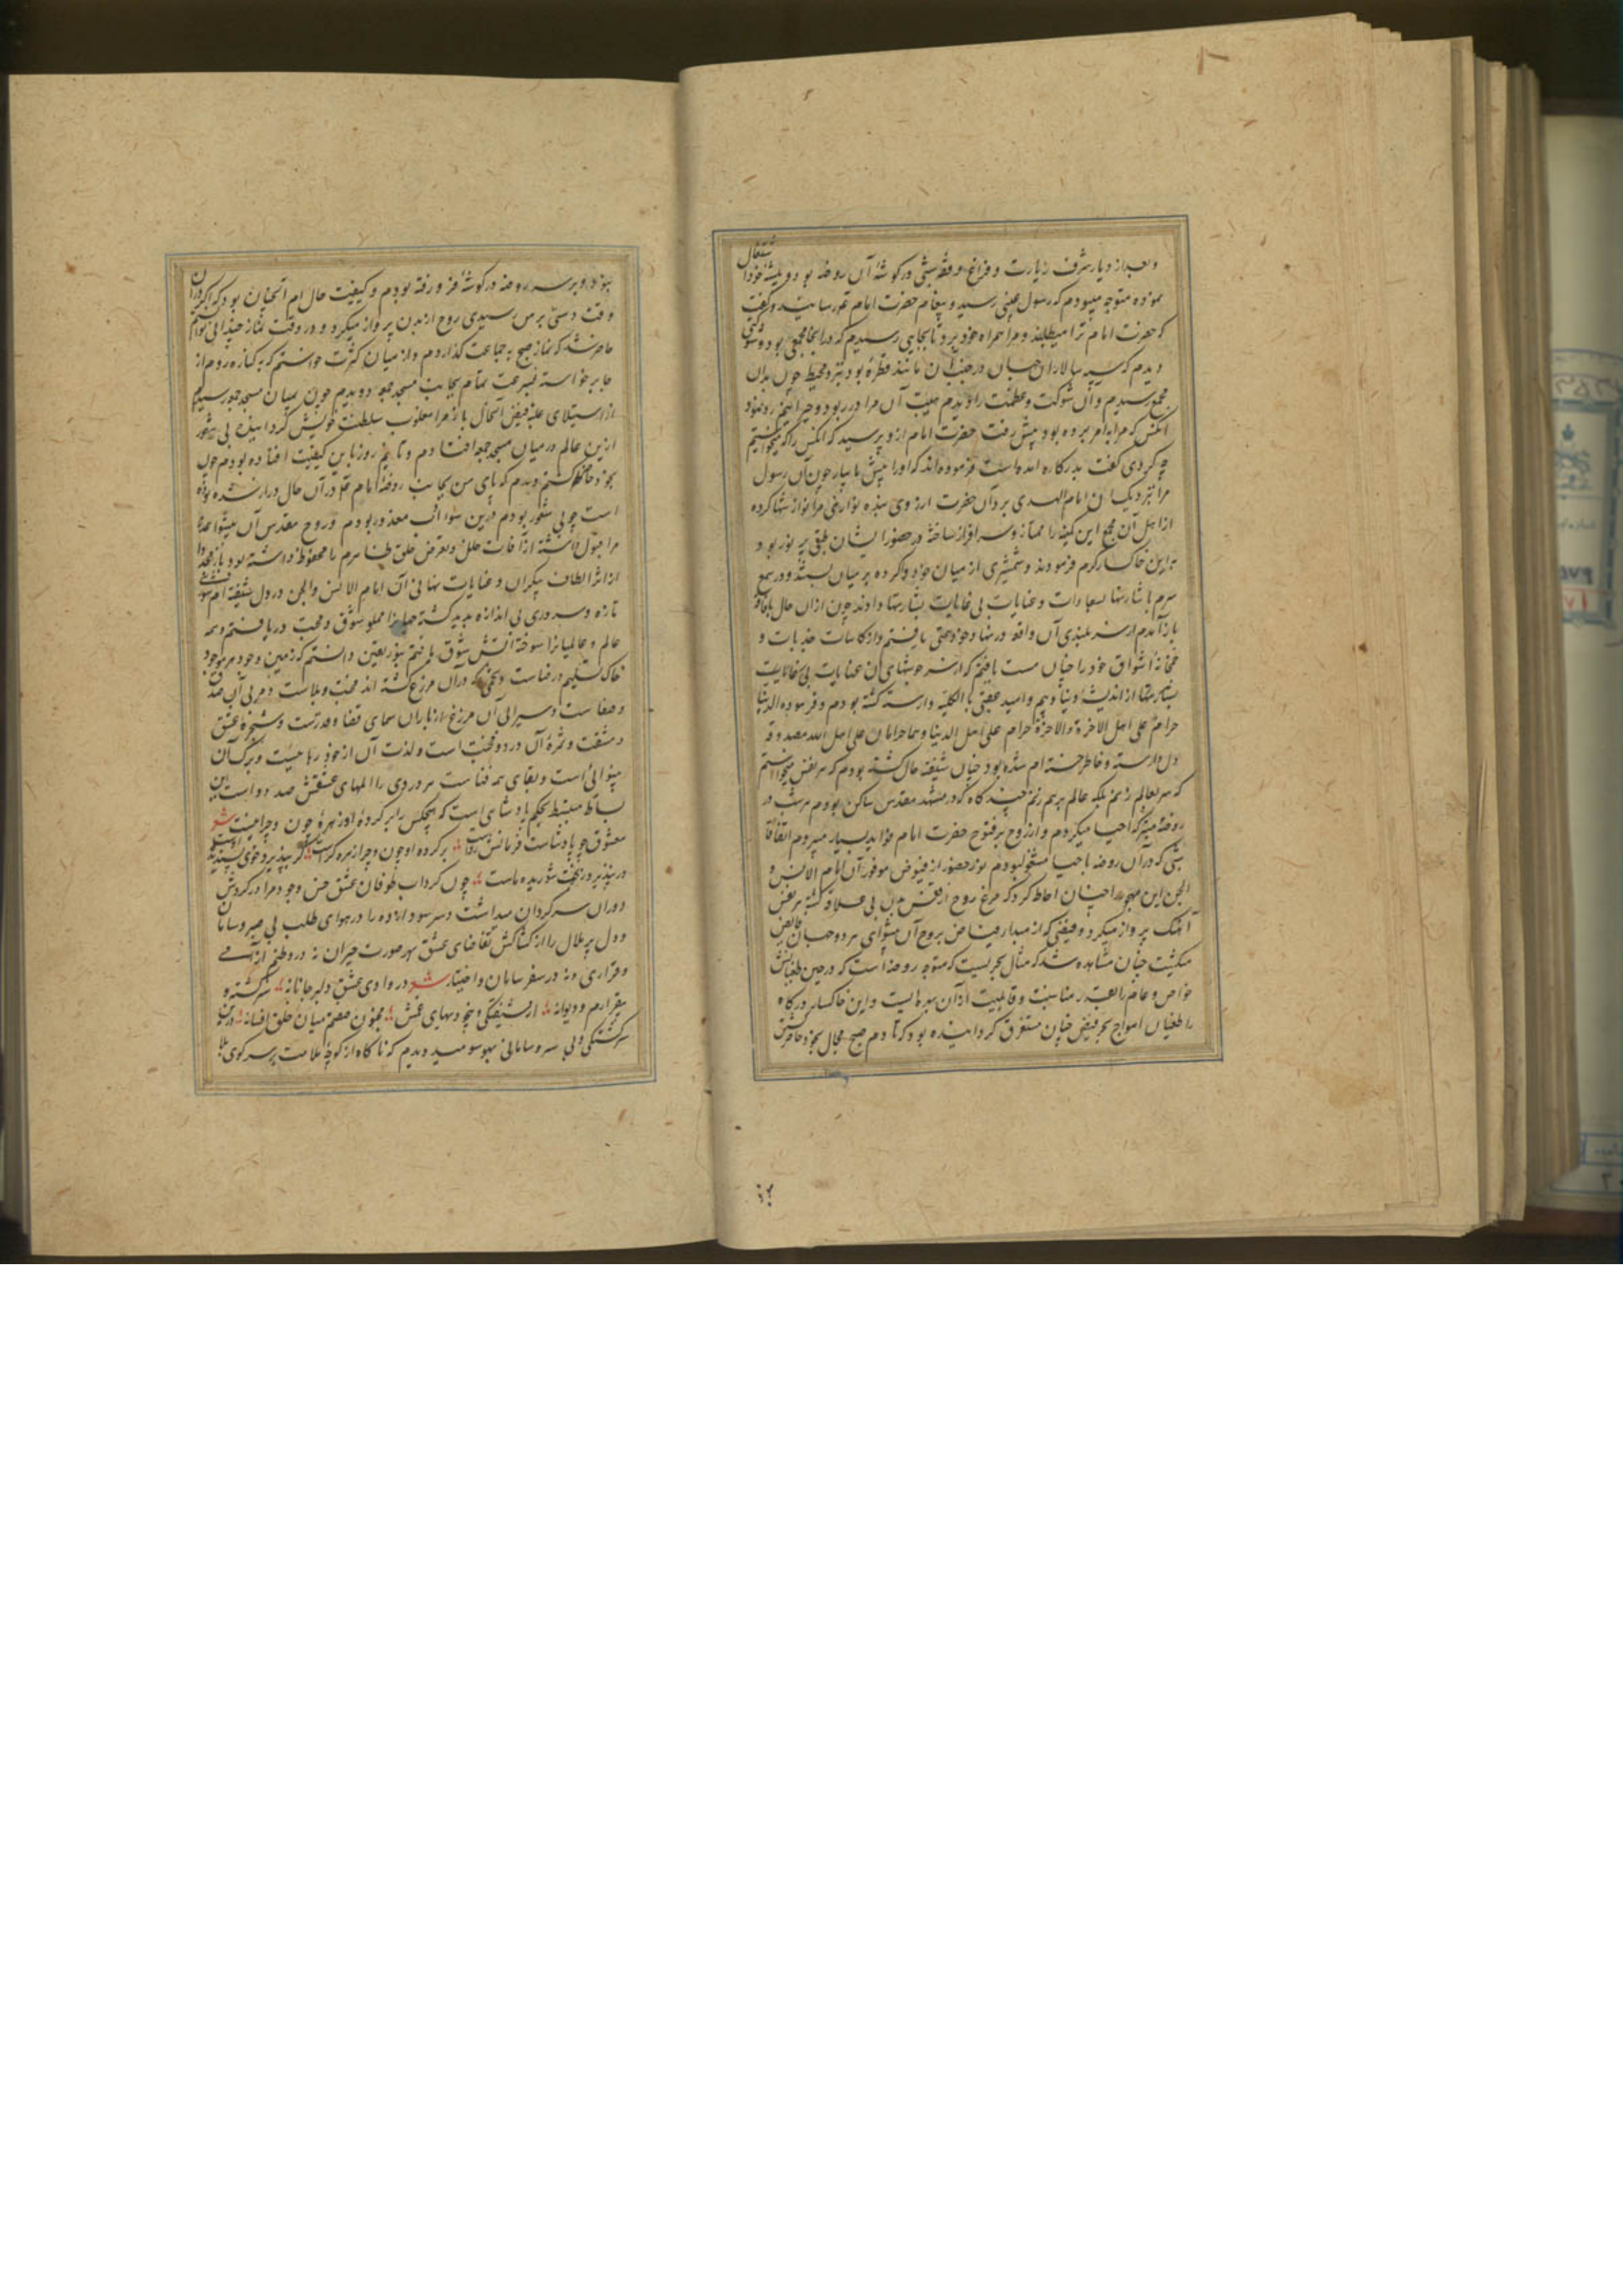 وبعد از دیار شرف زیارت و فراغ وقفه شبی در گوشهٔ آن روضه بودم
نموده متوجه میبودم که رسول غیبی رسید و پیغام حضرت امام رسانید و گفت
که حضرت امام ترا میطلبند و مرا همراه خود برد تا بجایی رسیدم که در آنجا مجمعی بود
دیدم که سپه سالاران جهان در جنب آن مانند قطرهٔ بود نزد محیط چون بدان
مجمع رسیدم و آن شوکت و عظمت را دیدم هیبت آن مرا در ربود و حیرانیم رو نمود
آنکس که مرا به امر برده بود پیش رفت حضرت امام ازو پرسید که آنکس را که میخواستیم
چه کردی گفت بدرگاه آمده است فرموده اند که او را پیش ما بیار چون آن رسول
مرا نزدیک آن امام الهدی برد آن حضرت از روی بنده نوازیی مرا نوازشها کرده
از اهل آن مجمع این کمینه را ممتاز و سرافراز ساخته در حضور ایشان طبقی پر نور بود
به این خاکسار کرم فرمودند و شمشیری از میان خود وا کرده بر میان بست و در سمع
سرم با شارتها بسعادات و عنایات بی غایات بشارتها دادند چون از آن حال
باز آمدم از سر بلندی آن واقعه در نهاد خود یافتم و از کاسات جذبات و
خمخانهٔ اشواق خود را چنان مست یافتم که از سرخوشیهای آن عنایات بی غایات
از اندیشهٔ دنیا و بیم و امید عقبی بالکلیه وارسته گشته بودم و فرموده الدنیا
حرام علی اهل الاخرة والاخرة حرام علی اهل الدنیا وهما حرامان علی اهل الله
دل وارسته و خاطر خسته ام شده بود چنان شیفته حال گشته بودم که هر نفس میخواستم
که سر بعالم زنم بلکه عالم برهم زنم چند گاه که در مشهد مقدس ساکن بودم هر شب در
روضهٔ متبرکه احیا میکردم و از روح پرفتوح حضرت امام فواید بسیار میبردم اتفاقا
شبی که در آن روضه باحیا مشغول بودم نور حضور از فیوض موفور آن امام الانس و
الجن این مهجور را چنان احاطه کرد که مرغ روح از قفس بدن بی علاقه گشته هر نفس
آهنگ پرواز میکرد و فیضی که از مبدا فیاض بروح آن پیشوای هر دو جهان فایض
میگشت چنان مشاهده شد که مثال بحریست که متوجه روضه است که در حین طغیانش
خواص و عام را بقدر مناسبت و قابلیت از آن بهره ایست و این خاکسار درگاه
را طغیان امواج بحر فیض چنان مستغرق گردانیده بود که تا دم صبح مجال بخود حاضر شدن
نبود و بر سر روضه در گوشه فرو رفته بودم و کیفیت حال ام آنچنان بود که اگر در آن
وقت دستی بر من رسیدی روح از بدن پرواز میکرد و در وقت نماز جذبه الهی بحالم
حاضر شد که نماز صبح به جماعت گذاردم و از میان کثرت خواستم که به کناره روم از
جا برخواسته بسرعت تمام بجانب مسجد جمعه دویدم چون بمیان مسجد جمعه رسیدم
از استیلای غلبه فیض آنحال باز مرا مغلوب سلطنت خویش گردانیده بی شعور
ازین عالم در میان مسجد جمعه افتادم و تا نیم روز باین کیفیت افتاده بودم چون
بخود حاضر گشتم دیدم که پای من بجانب روضهٔ امام در آن حال دراز شده بوده
است چو بی شعور بودم درین سوء ادب معذور بودم و روح مقدس آن پیشوا
مرا قبول داشته از آفات خلل و تعرض خلق سرم را محفوظ داشته بود
از اثر الطاف بیکران و عنایات نهانی آن امام الانس والجن در دل شیفته ام
تازه و سروری بی اندازه پدید گشته جهانرا مملو شوق و محبت دریافتم و همه
عالم و عالمیانرا سوختهٔ آتش شوق یافتم بنور یقین دانستم که زمین وجود هر موجود
خاک تسلیم و رضاست و تخمی که در آن مزرع کشته اند محنت و بلاست و مربی آن صدق
و صفاست و سیرابی آن مزرع از باران سمای قضا و قدرست و شجره عشق
و مشقت و ثمرهٔ آن درد و محنت است و لذت آن از خود رهاییست و برگ آن
بینوائی است و بقای همه فناست هر دردی را المهای عشقش صد دواست این
بساط منبسط بحکم پادشاهی است که هیچکس را بر کردهٔ او زهرهٔ چون و چرا نیست شعر
معشوق چو پادشاست فرمانش رواست بر کرده او چون و چرا زهره کراست گر بپذیرد خوی پسندیده اوست
ور نپذیرد بخت شوریده ماست چون گرداب طوفان عشق من وجود مرا در گردش
دوران سرگردان میداشت و سر سودا زده را در هوای طلب بی صبر و سامان
و دل پر ملال را از کشاکش تقاضای عشق بهر صورت حیران نه در وطنم آرامی
و قراری و نه در سفر سامان و اختیار شعر در وادی عشق دلبر جانانه سرگشته و
بیقرارم و دیوانه از شیفتگی و بیخودیهای عشق مجنون صفتم میان خلق افسانه درین
سرگشتگی و بی سر و سامانی بهر سو میدویدم که ناگاه از کوچه ملامت بر سر کوی بلا